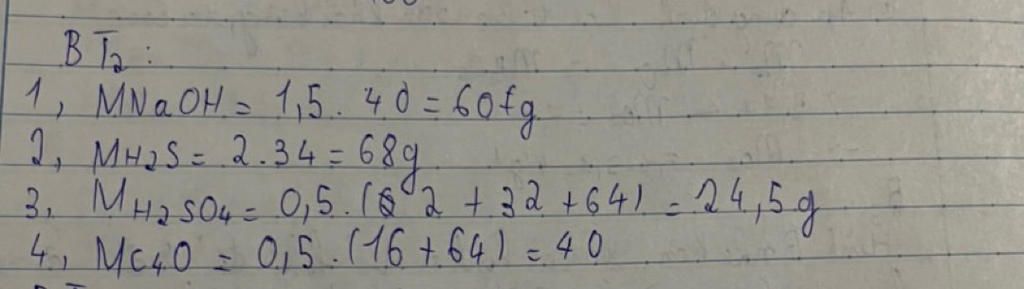 BT2:
1, MNaOH = 1,5 . 40 = 60fg
2, MH2S = 2.34 = 68g
3, MH2SO4 = 0,5.( 2 + 32 + 64) = 24,5g
4, MC4O = 0,5.(16 + 64) = 40